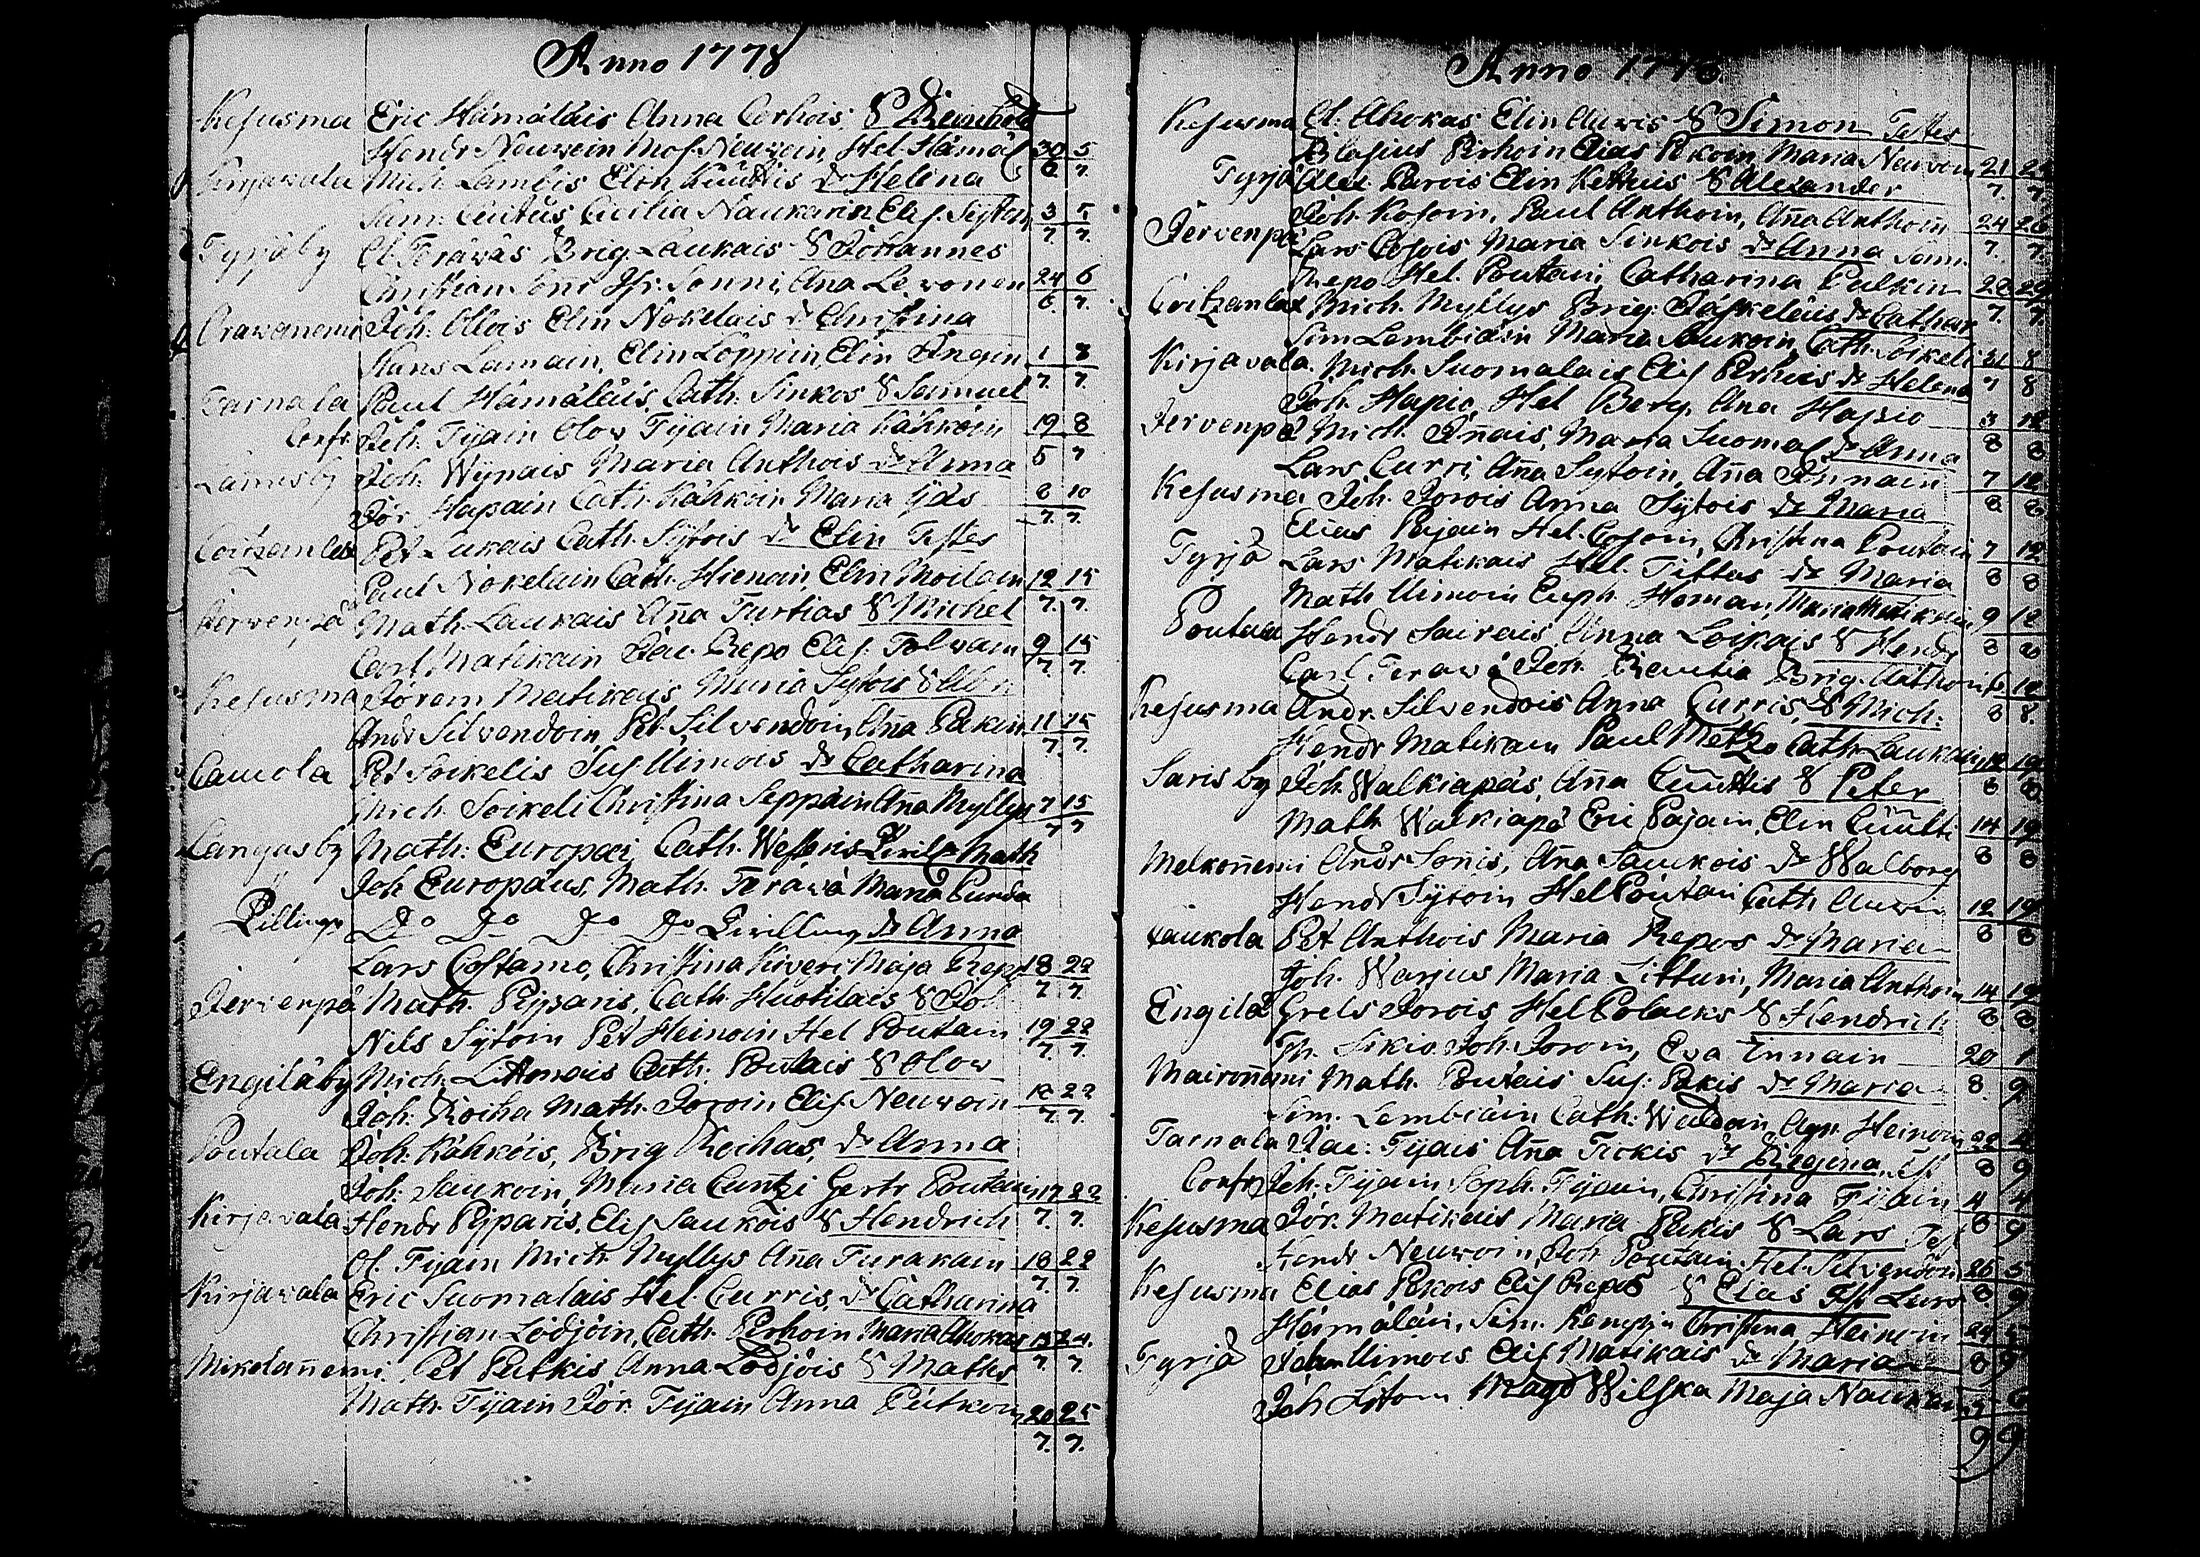 Anno 1778
Kesusma Eric Hämäläis Anna Cerhois S Reinhold
Hendr Neuwoin Mos. Neuwoin, Hel. Hämäl 30/6. 5/7.
Kirjavala Mich Lembis Elin Küüttis Dr Helena
Cecilia Naukarin Elis. Sÿtoin 3/7. 5/7.
Tyrjäby Ol Teräwäs Brig Laukais S Johannes
Christian Sonni Sonni, Aña Lewonen 24/6. 6/7.
Orawanemi Joh. Ollois Elin Nokelais Dr Christina
Hans Lamain, Elin Löppöin, Elin Ängin 1/7. 8/7.
Tarnala Paul Hämäläis Cath. Sinkos S Samuel
Confr. Joh. Tijain Olow Tijain Maria Kähköin 19/5 8/7
Joh. Wÿnais Maria Anthois Dr Anna
Jör Hapain Cath. Kähköin Maria 8/7. 10/7.
Coitzanlax Pet Lukais Cath. Sÿtois Dr Elin Testes
Paul Nokelain Cath. Hienoin, Elin Moilain 12/7. 15/7.
Jervenpä Math. Laukais Aña Turtias S Michel
Carl Matikain Isac. Repo Elis. Tolwain 9/7. 15/7.
Kesusma Jörem Matikais Maria Sÿtois S Abr
Andr Silvendoin Pet Silvendoin Aña Pekin 11/7. 15/7.
Camola Pet Soikelis Sus Uimois Dr Catharina
Mich. Soikeli Christina Seppäin Aña Myllys 7/7 15/7
Langasby Math: Europæi, Cath. Wesseris Math
Joh Europæus, Math. Teräwä Maria Cunda
Do Do Do Do Dr Anna
Lars Costamo, Christina Kiveri Maja Repo 18/7 22/7.
Jervenpä Math. Pijparis, Cath. Huotilais S Joh
Nils Sÿtoin Pet Heinoin Hel Poutain 19/7. 22/7.
Engiläby Mich. Littonais Cath. Poutais S Olow
Joh. Roiha Math. Joroin Elis Neuwoin 22/7.
Poutala Joh. Kähköis, Brig Roihas, Dr Anna
Joh. Saukoin, Maria Cuntzi Gertr Poutain 17/7. 22/7.
Kirjavala Hendr Pijparis, Elis Saukois S Hendrich
Ol. Tijain Mich Myllys Aña Turakain 18/7. 22/7.
Kirjavala Eric Suomalais Hel. Curris, Dr Catharina
Christian Lödjöin, Cath. Perhoin Maria Ahokas 15/7. 24./7.
Mikolañemi Pet Putkis Anna Lödjöis S Maths
Math. Tijain Jör. Tijain Anna Peutkoin 20/7. 25/7.
Anno 1778
Kesusma Ol. Ahokas Elin Auwis S Simon Testes
Blasius Perhoin Elias Pekoin Maria Neuwoin 21/7. 25/7.
Tyrjä Alex. Parois Elin Kettuis S Alexander
Joh. Kosoin, Paul Anthoin, Aña Anthoin 24/7. 26/7.
Jervenpä Lars Cosois Maria Sinkois Dr Anna Sam.
Repo Hel. Poutain Catharina Pulkin 29/7.
Coitzanlax Mich. Myllys Brig. Jäskeläis Dr Cathar
Sim Lembiäin Maria Saukoin, Cath. Soikeli 31/7 8/8
Kirjavala Mich. Suomalais Elis Perhois Dr Helena
Joh. Hapio, Hel Berg. Ana Hapio 3/8 12/8
Jervenpä Mich. Iñais, Maria Suomal Dr Anna
Lars Curri, Aña Sytoin, Aña Innain 7/8 12/8
Kesusma Joh. Jorois Anna Sÿtois Dr Maria
Elias Pajain Hel. Cosoin, Christina Poutain 7/8 12/8
Tyrjä Lars Matikais Hel Tittus Dr Maria
Math Uimoin Euph. Homan, Maria Matikain 9/8 12/8
Poutala Hendr Sairais Anna Loikais S Hendr
Carl Teräwä Joh. Reutia Brig. Anthoin
Kesusma Andr. Silvendois Anna Curris, S Mich:
Hendr Matikain Paul Metzo Cath. Laukain 19/8.
Sarisby Joh. Walkiapäs, Aña Cüüttis S Peter
Math Walkiapä Eric Pajain, Elin Cüütti 14/8 19/8
Melkoñemi Andr Soñis, Aña Saukois Dr Walborg
Hendr Sÿtoin Hel Poutain Cath Auwin 12/8 19/8
Laukola Pet Anthois Maria Repos Dr Maria
Joh. Warjus Maria Litturi, Maria Anthoin 14/8 19/8.
Engilä Grels Jorois Hel Polacks S Hendrich
Th. Sikio Joh. Joroin, Eva Innain 20/8. 1/9.
Maironñemi Math. Poutais Sus. Pekis Dr Maria
Sim. Lembiäin Cath. Waldain, Agn. Heinoin 22/8 4/9
Tarnala Isac: Tijais Aña Tickis Dr Regina Tst
Confr. Joh. Tijain Soph. Tijain, Christina Tijain 4/8 4/9
Kesusma Jör. Matikais Maria Pekis S Lars Test
Hendr Neuwoin, Joh Poutain Hel. Silvendoin 26/8. 5/9
Kesusma Elias Pekois Elis Repos S Elias Tst Lars
Hämäläin, Sim. Kämppi Christina Heinoin
Tyrjä Uimois Elis Matikais Dr Maria
Joh Littoin Mago Wilska Maja Naukarin 6/9